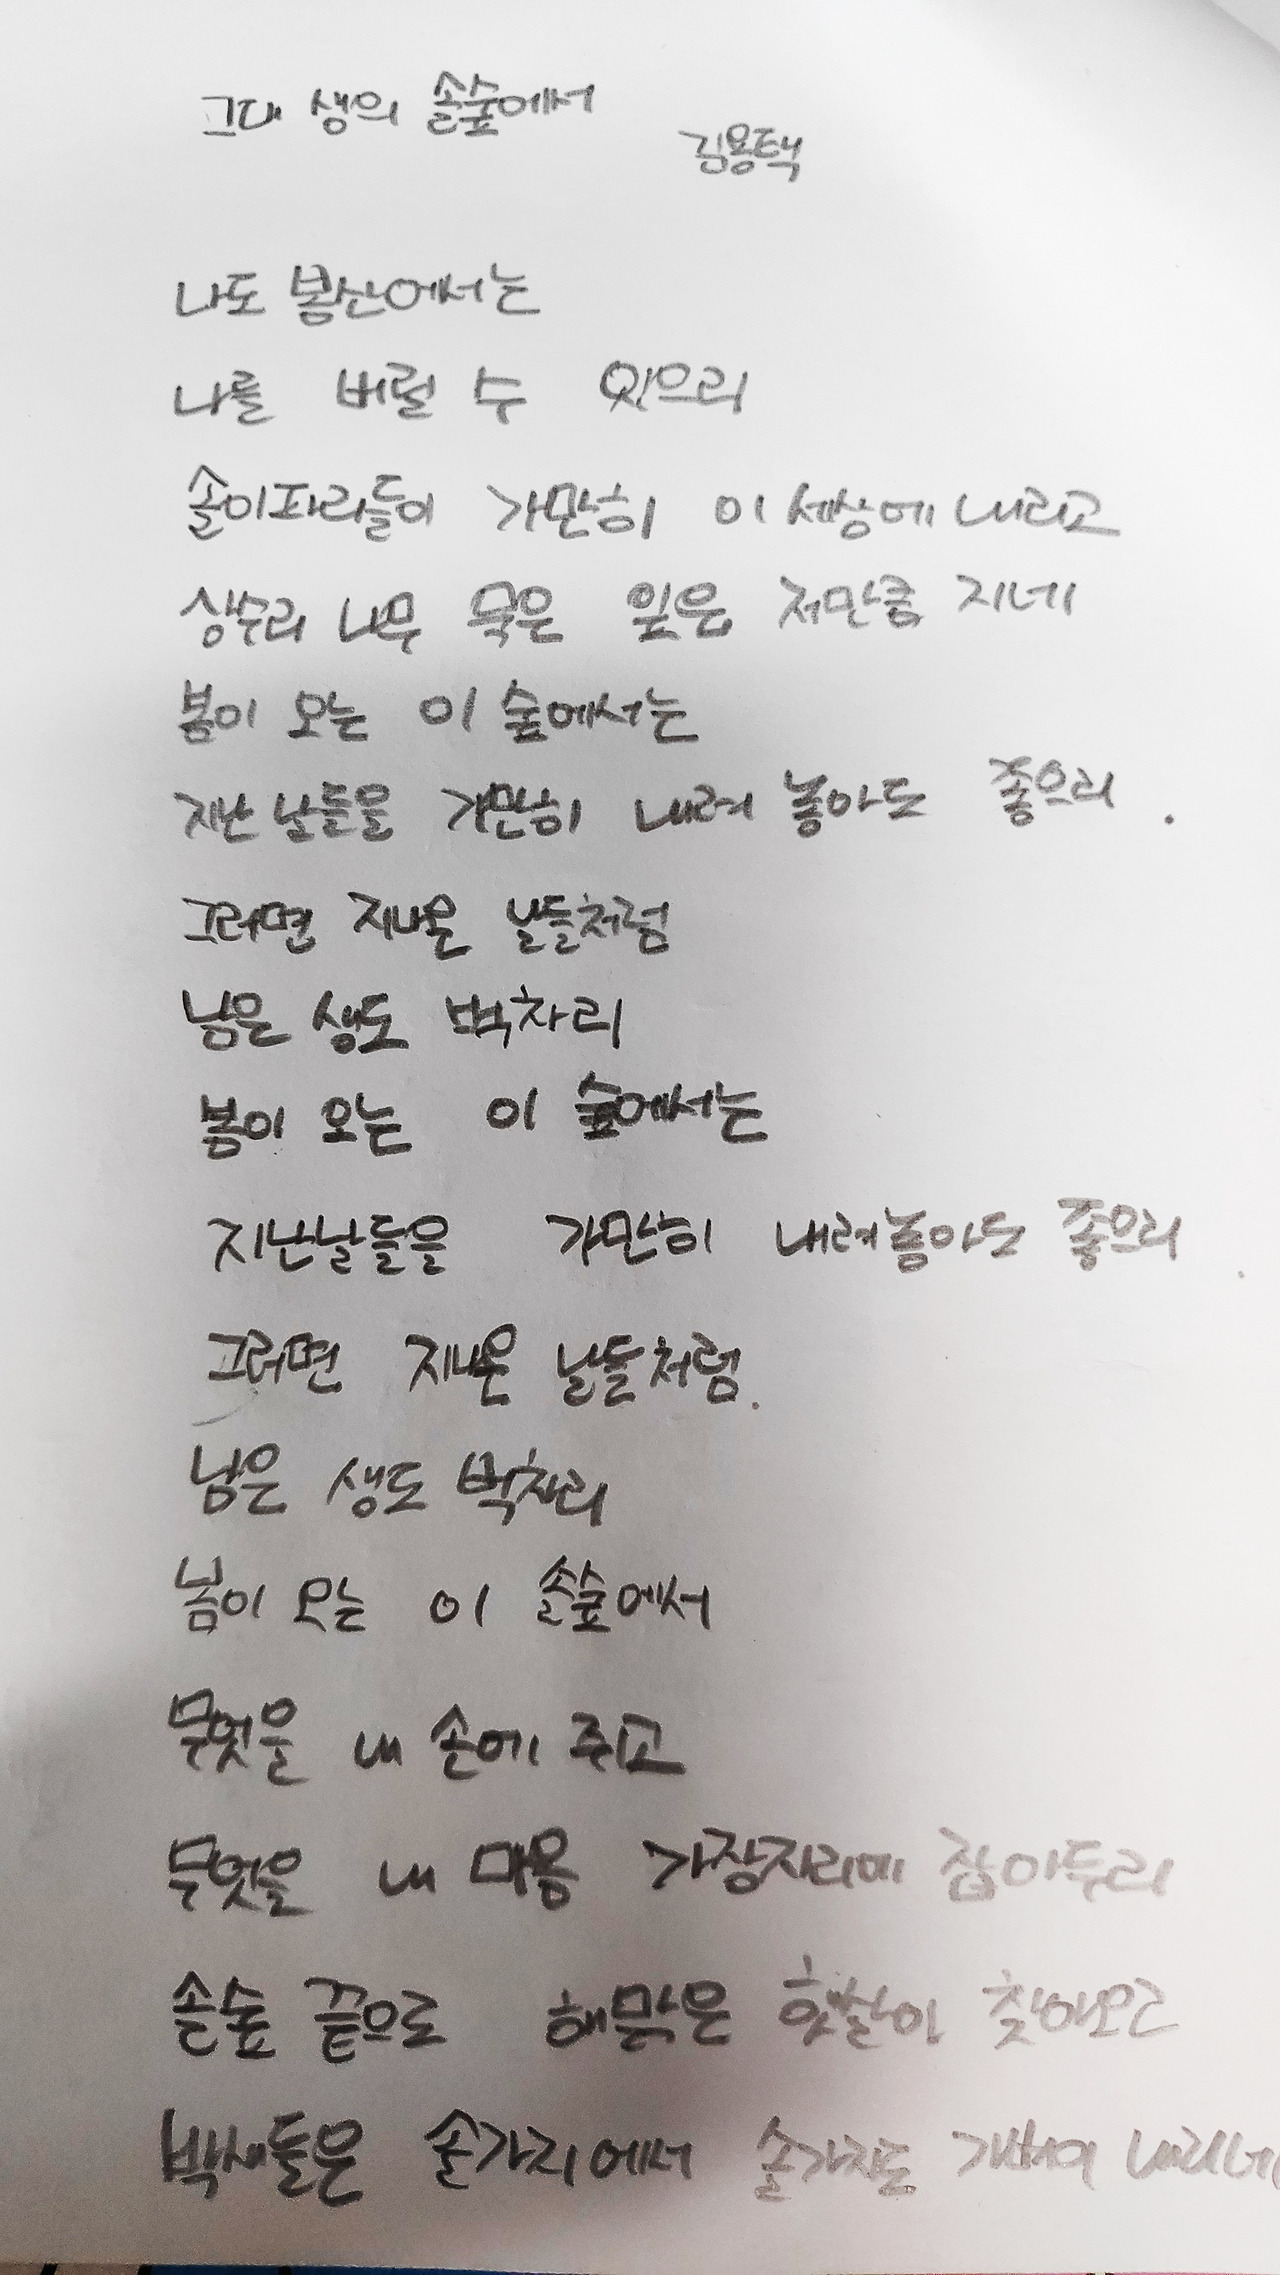 그대 생의 솔숲에서
김용택
나도 봄산에서는
나를 버릴 수 있으리
솔이파리들이 가만히 이 세상에 내리고
상수리 나무 묵은 잎은 저만큼 지네
봄이 오는 이 숲에서는
지난 날들을 가만히 내려 놓아도 좋으리.
그러면 지나온 날들처럼
남은 생도 벅차리
봄이 오는 이 숲에서는
지난날들을 가만히 내려놓아도 좋으리.
그러면 지나온 날들처럼.
남은 생도 벅차리
봄이 오는 이 솔숲에서
무엇을 내 손에 쥐고
무엇을 내 마음 가장자리에 잡아두리
솔숲 끝으로 해맑은 햇살이 찾아오고
박새들은 솔가지에서 솔가지로 가벼이 내리네